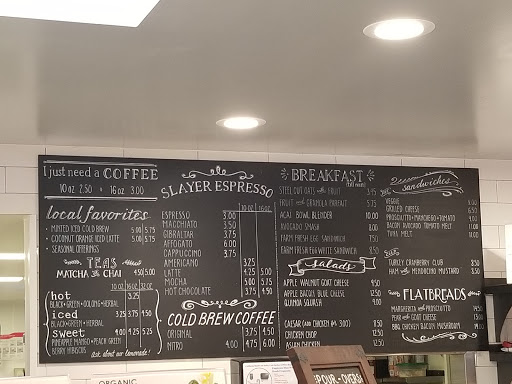 I just need a COFFEE
10 oz 2.50 + 16 oz 3.00
local favorites
MINTED ICED COLD BREW 5.00 | 5.75
COCONUT ORANGE ICED LATTE 5.00 | 5.75
SEASONAL OFFERINGS
TEAS
MATCHA or CHAI 4.50 | 5.00
10 oz 16 oz 32 oz
hot 3.25
BLACK • GREEN • OOLONG • HERBAL
iced 3.25 3.75 4.50
BLACK • GREEN • HERBAL
sweet 4.00 4.25 5.25
PINEAPPLE MANGO • PEACH GREEN
BERRY HIBISCUS
ask about our lemonade!
SLAYER ESPRESSO
10 oz 16 oz
ESPRESSO 3.00
MACCHIATO 3.50
GIBRALTAR 3.75
AFFOGATO 6.00
CAPPUCCINO 3.75
AMERICANO 3.25
LATTE 4.25 5.00
MOCHA 5.00 5.75
HOT CHOCOLATE 3.75 4.50
COLD BREW COFFEE
ORIGINAL 3.75 4.50
NITRO 4.00 4.75 6.00
BREAKFAST
STEEL CUT OATS with FRUIT
FRUIT and GRANOLA PARFAIT 5.75
ACAI BOWL BLENDER 10.00
AVOCADO SMASH 8.00
FARM FRESH EGG SANDWICH 7.50
FARM FRESH EGG WHITE SANDWICH 8.50
salads
APPLE WALNUT GOAT CHEESE 9.50
APPLE BACON BLUE CHEESE
QUINOA SQUASH
CAESAR (add CHICKEN for 3.00) 9.50
CHICKEN CHOP 12.50
ASIAN CHICKEN 12.50
sandwiches
VEGGIE 9.00
GRILLED CHEESE 6.50
PROSCIUTTO + MANCHEGO + TOMATO
BACON AVOCADO TOMATO MELT
TUNA MELT
TURKEY CRANBERRY CLUB
HAM with MENDOCINO MUSTARD
FLATBREADS
MARGHERITA with PROSCIUTTO
PEAR and GOAT CHEESE
BBQ CHICKEN BACON MUSHROOM
ORGANIC
POUR-OVERS